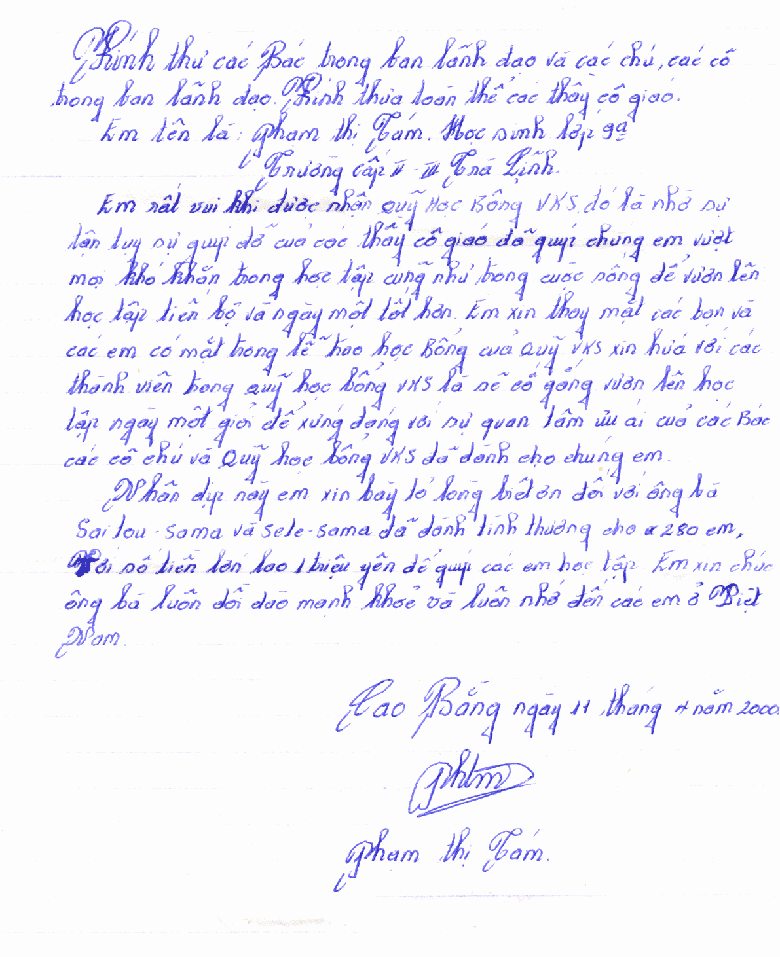 Kính thư các Bác trong ban lãnh đạo và các chú, các cô
trong ban lãnh đạo. Kính thưa toàn thể các thầy cô giáo.
Em tên là: Phạm thị Tám. Học sinh lớp 9a
Trường cấp II - III Trà Lĩnh.
Em rất vui khi được nhận Quỹ Học Bổng VKS, đó là nhờ sự
tận tụy sự giúp đỡ của các thầy cô giáo đã giúp chúng em vượt
mọi khó khăn trong học tập cũng như trong cuộc sống để vươn lên
học tập tiến bộ và ngày một tốt hơn. Em xin thay mặt các bạn và
các em có mặt trong lễ trao học Bổng của Quỹ VKS xin hứa với các
thành viên trong Quỹ học bổng VKS là sẽ cố gắng vươn lên học
tập ngày một giỏi để xứng đáng với sự quan tâm ưu ái của các Bác
các cô chú và Quỹ học bổng VKS đã dành cho chúng em.
Nhân dịp này em xin bày tỏ lòng biết ơn đối với ông bà
Saitou-sama và Sele-sama đã dành tình thương cho 280 em,
Với số tiền lớn lao 1 triệu yên để giúp các em học tập. Em xin chúc
ông bà luôn dồi dào mạnh khoẻ và luôn nhớ đến các em ở Việt
Nam.
Cao Bằng ngày 11 tháng 4 năm 2000
Phtm
Phạm thị Tám.